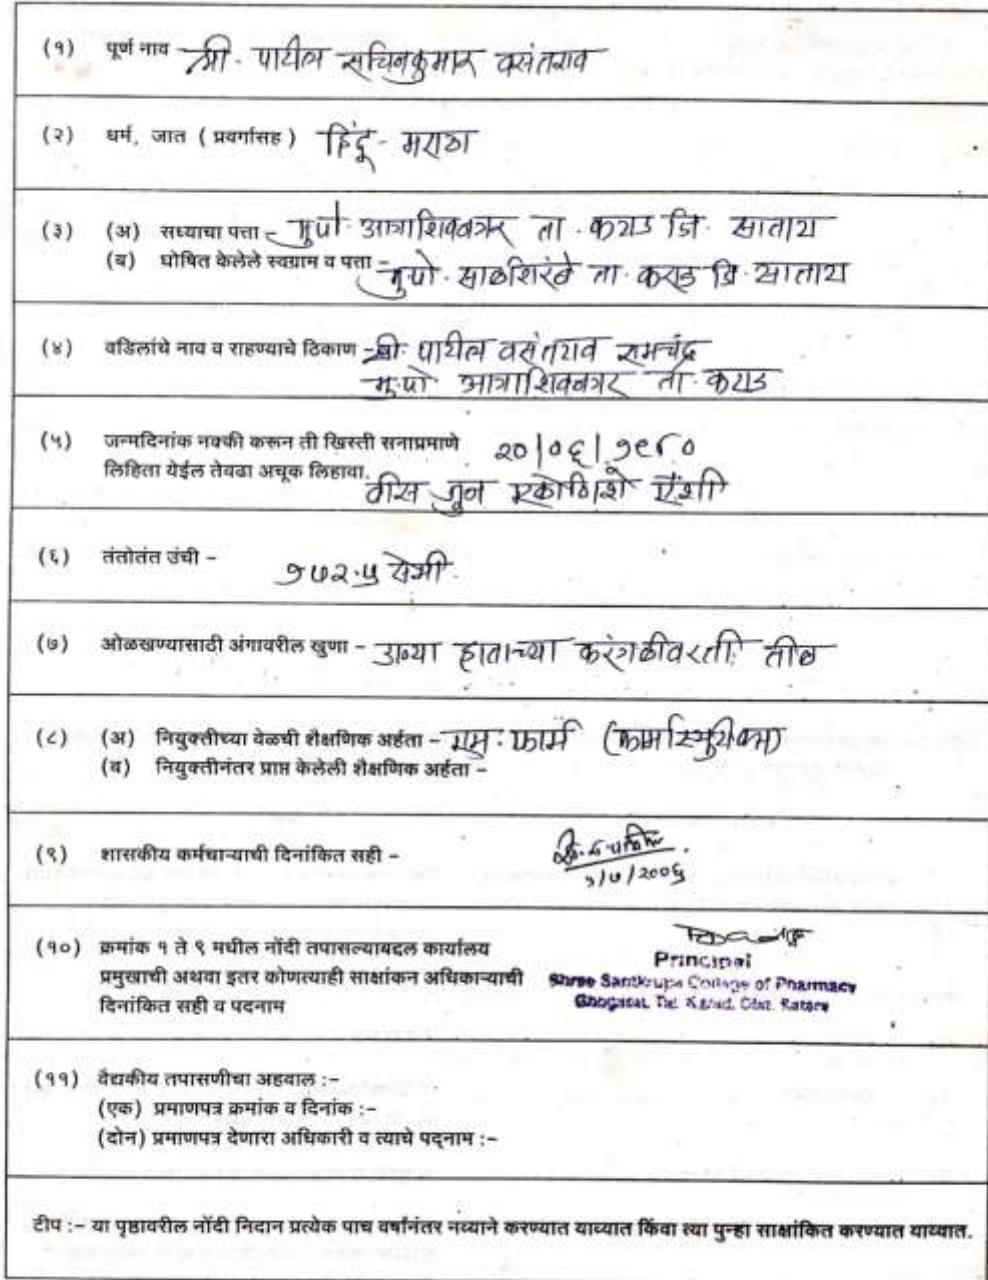 (१) पूर्ण नाव - श्री. पाटील सचिनकुमार वसंतराव
(२) धर्म, जात ( प्रवर्गासह ) हिंदू - मराठा
(३) (अ) सध्याचा पत्ता - मुपो. आत्राशिवनगर ता. कराड जि. सातारा
(ब) घोषित केलेले स्वग्राम व पत्ता - मुपो. साळशिरंबे ता. कराड जि. सातारा
(४) वडिलांचे नाव व राहण्याचे ठिकाण - श्री. पाटील वसंतराव रामचंद्र
मु.पो. ता. कराड
(५) जन्मदिनांक नक्की करून ती ख्रिस्ती सनाप्रमाणे २०/०६/१९८०
लिहिता येईल तेवढा अचूक लिहावा. वीस जून एकोणिशे ऐंशी
(६) तंतोतंत उंची - १७२.५ सेमी.
(७) ओळखण्यासाठी अंगावरील खुणा - उजव्या हाताच्या करंगळीवरती तीळ
(८) (अ) नियुक्तीच्या वेळची शैक्षणिक अर्हता - एम. फार्म (फार्मास्युटीक्स)
(ब) नियुक्तीनंतर प्राप्त केलेली शैक्षणिक अर्हता -
(९) शासकीय कर्मचाऱ्याची दिनांकित सही -
१/७/२००६
(१०) क्रमांक १ ते ९ मधील नोंदी तपासल्याबद्दल कार्यालय
प्रमुखाची अथवा इतर कोणत्याही साक्षांकन अधिकाऱ्याची
दिनांकित सही व पदनाम
Principal
Shree Santkrupa College of Pharmacy
Ghogaon, Tal. Karad, Dist. Satara
(११) वैद्यकीय तपासणीचा अहवाल :-
(एक) प्रमाणपत्र क्रमांक व दिनांक :-
(दोन) प्रमाणपत्र देणारा अधिकारी व त्याचे पद्नाम :-
टीप :- या पृष्ठावरील नोंदी निदान प्रत्येक पाच वर्षांनंतर नव्याने करण्यात याव्यात किंवा त्या पुन्हा साक्षांकित करण्यात याव्यात.